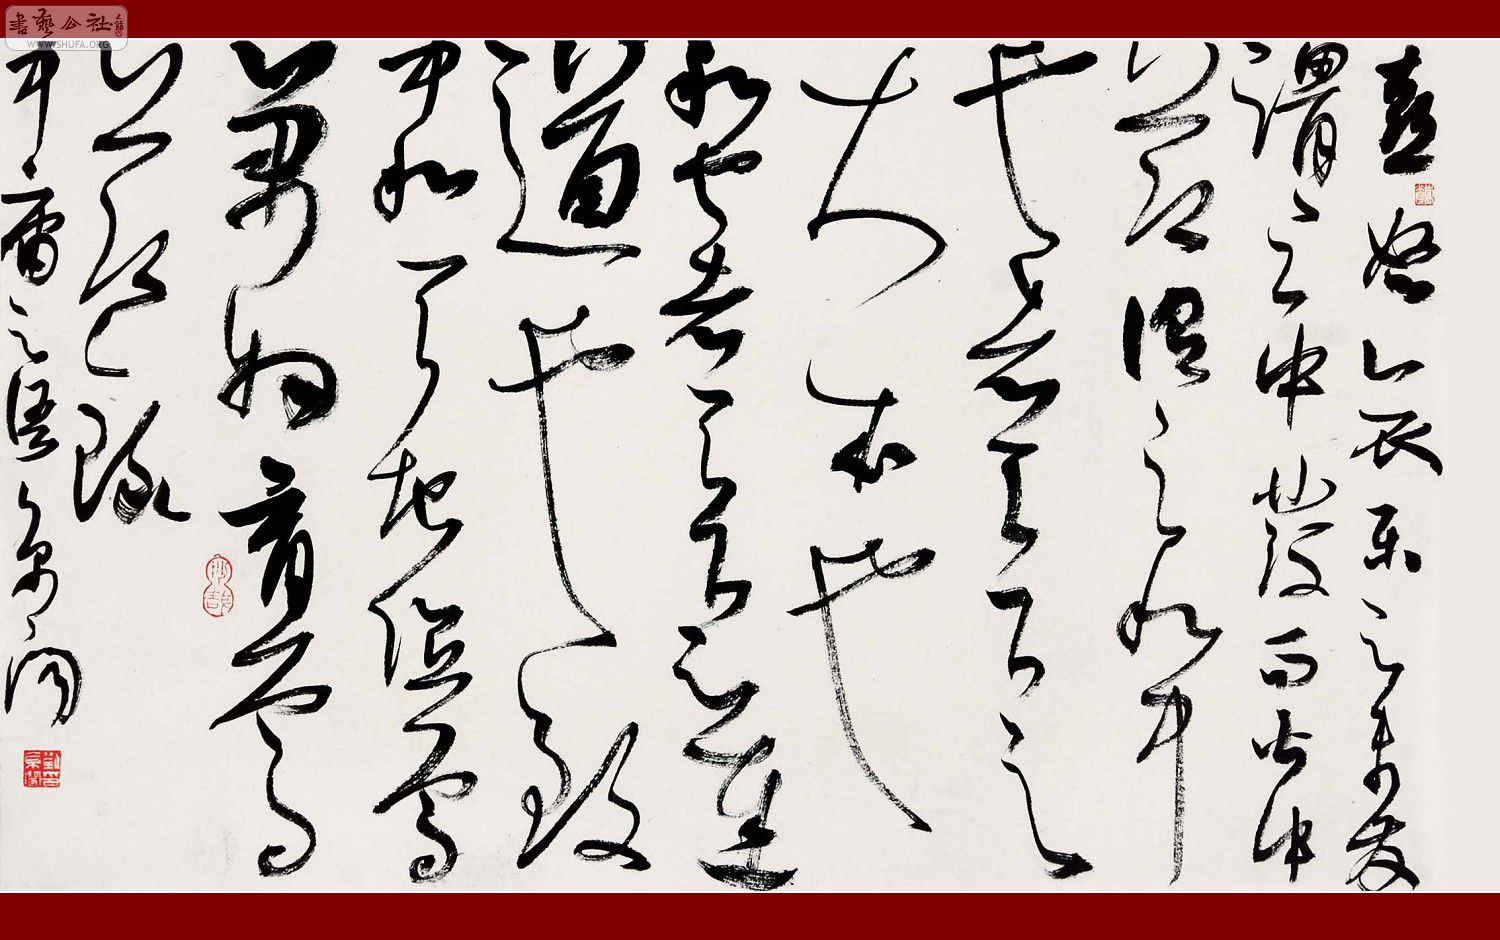 喜怒哀樂之未發
謂之中發而皆中
節謂之和中
也者天下之
大本也
和也者天下之達
道也致
中和天地位焉
萬物育焉
節錄
中庸之語
書藝公社
WWW.SHUFA.ORG